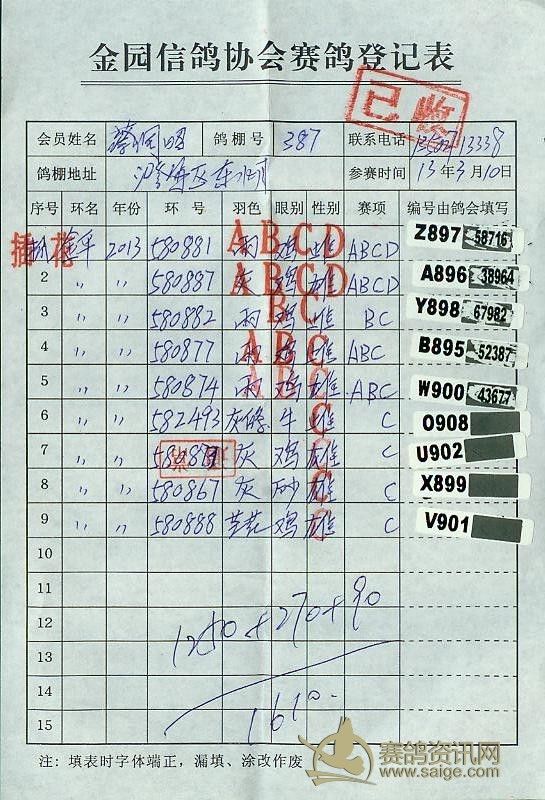 金园信鸽协会赛鸽登记表
已收
会员姓名 蔡 昭 鸽棚号 387 联系电话 13338
鸽棚地址 参赛时间 13年3月10日
序号 环名 年份 环号 羽色 眼别 性别 赛项 编号由鸽会填写
插花 2013 580881 雨 鸡 雄 ABCD ABCD Z897 58716
2 〃 〃 580887 灰 鸡 雄 ABCD ABCD A896 38964
3 〃 〃 580882 雨 鸡 雄 BC BC Y898 67982
4 〃 〃 580877 雨 鸡 雄 ABC ABC B895 52387
5 〃 〃 580874 雨 鸡 雄 ABC ABC W900 43677
6 〃 〃 582493 灰 牛 雄 C C O908
7 〃 〃 灰 鸡 雄 C C U902
8 〃 〃 580867 灰 砂 雄 C C X899
9 〃 〃 580888 花 鸡 雄 C C V901
10
11
12 1250+270+90
13
14
15 1610.
注：填表时字体端正，漏填、涂改作废
赛鸽资讯网
www.saige.com